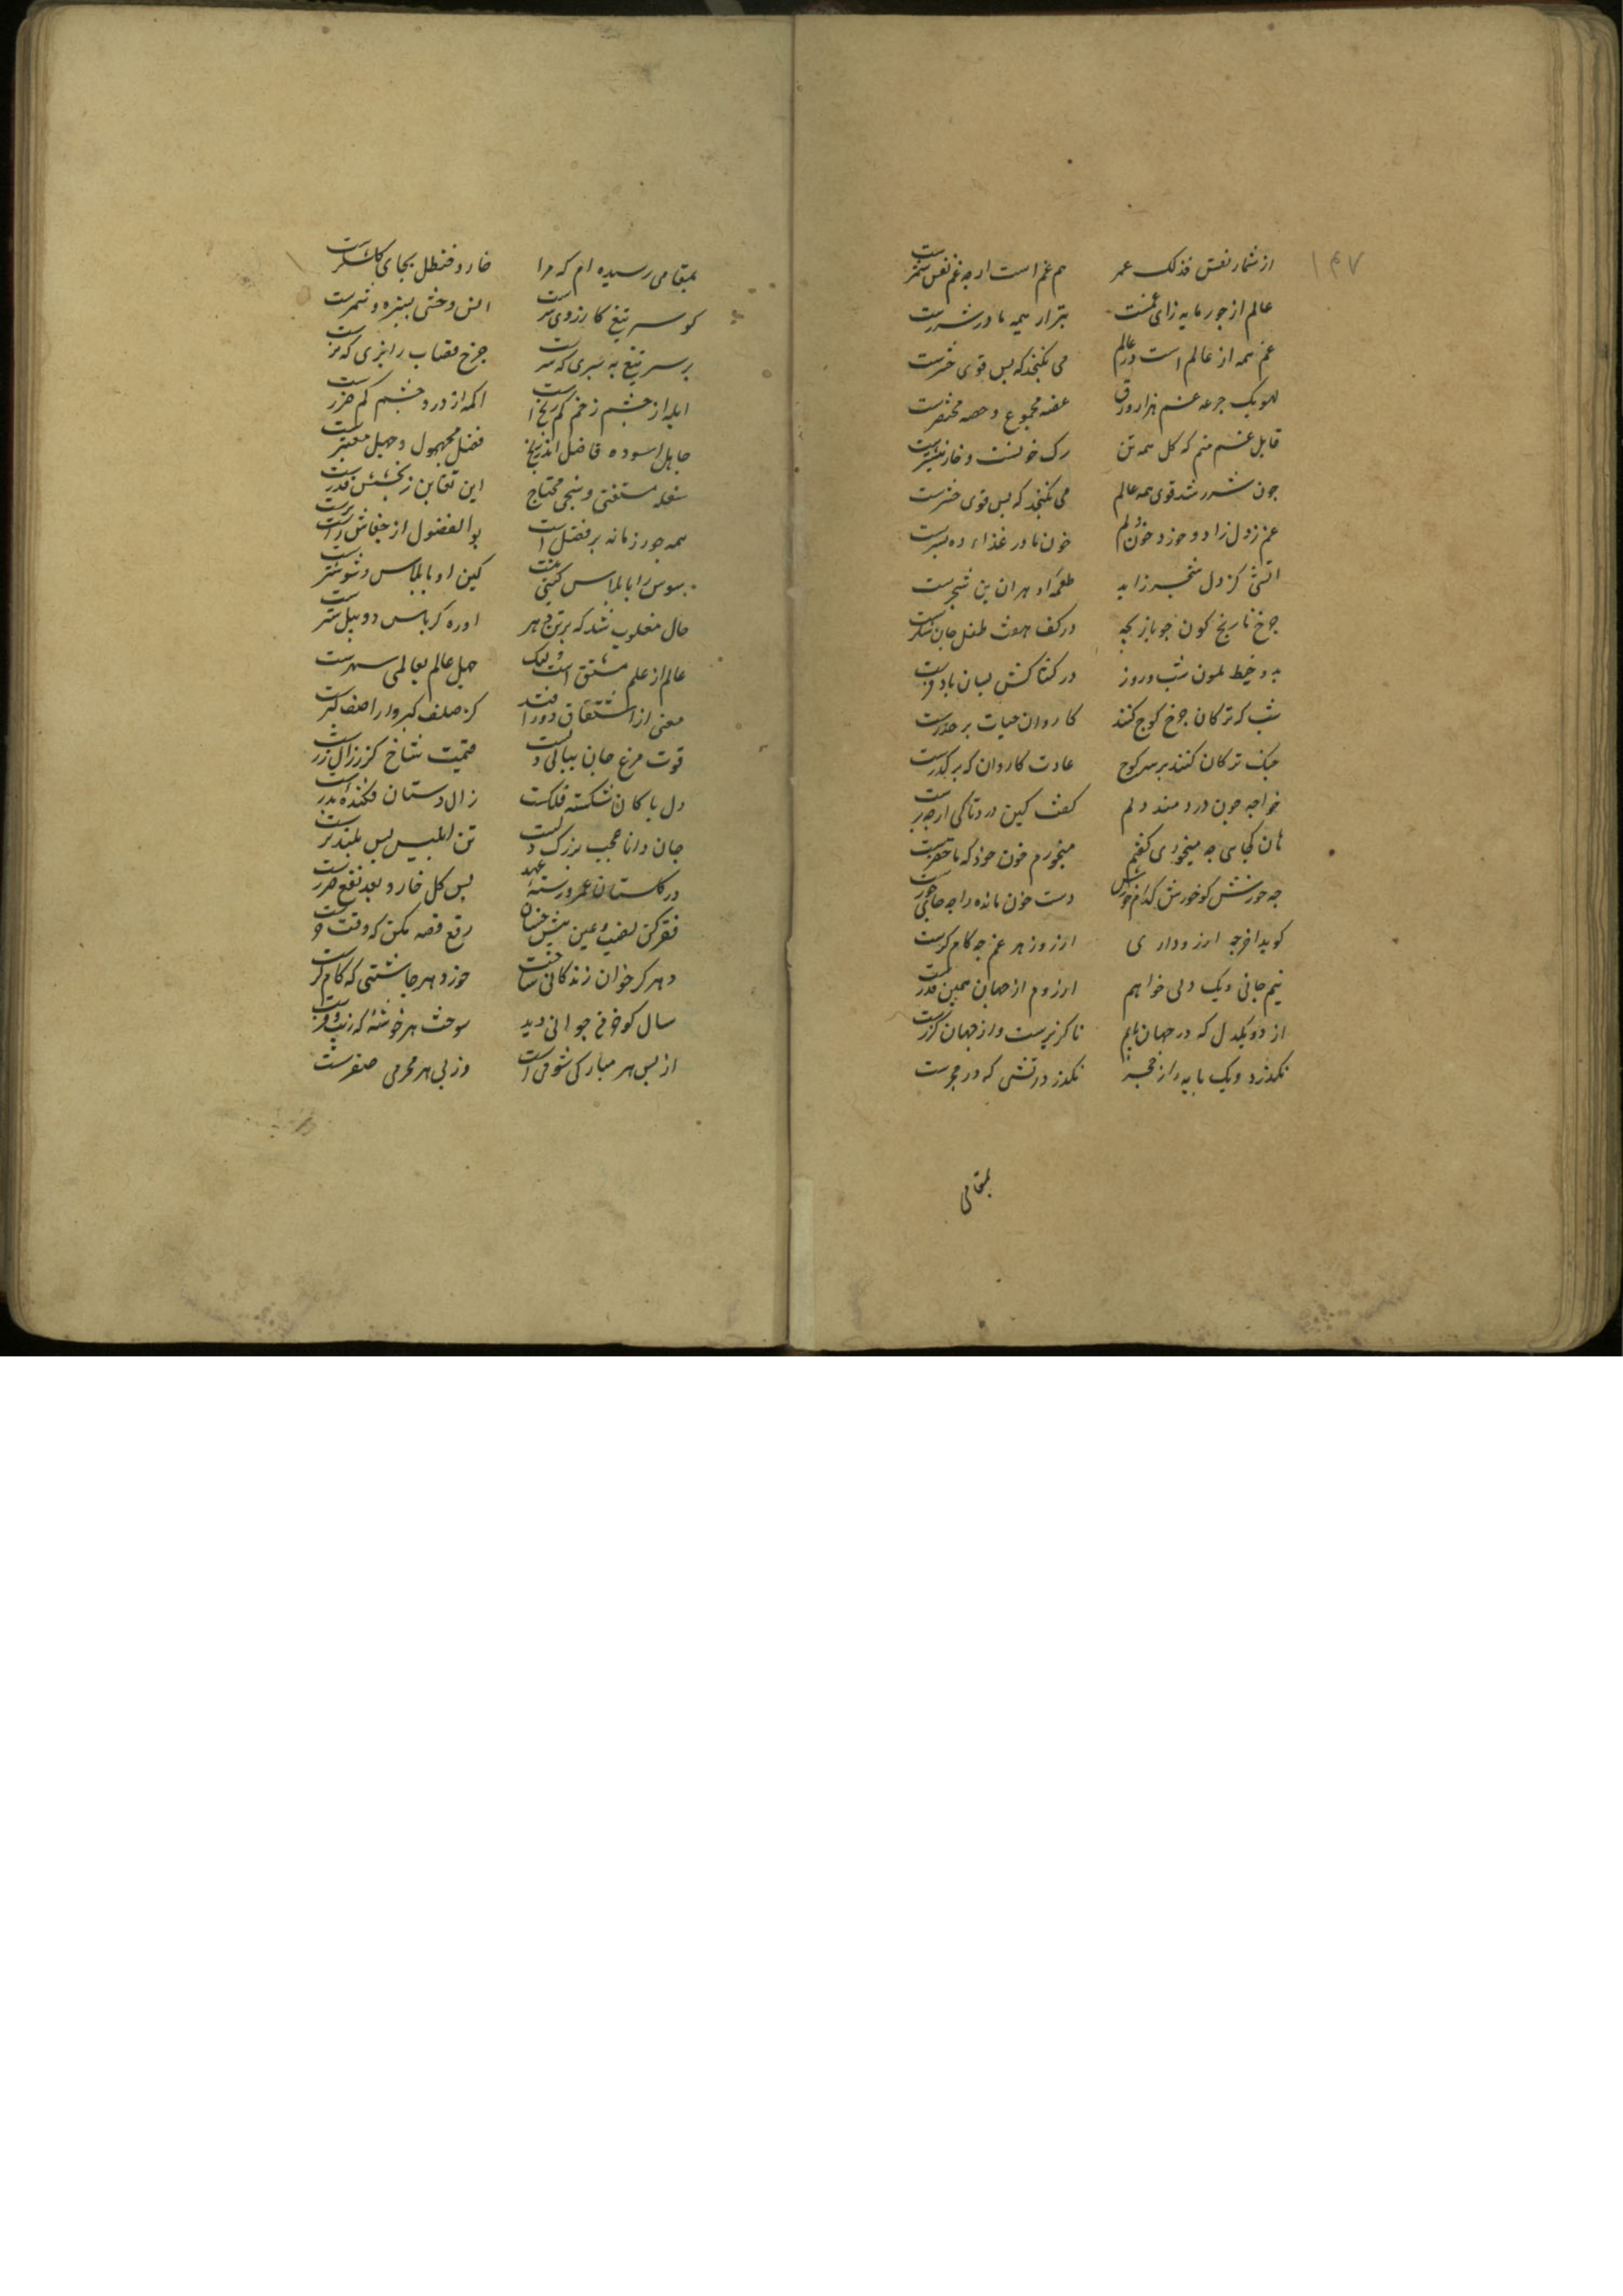 ۱۴۷
از شمار نفس فذلک عمر هم غم است ارچه غم نفس شمرست
عالم از جور مایه زای غمست بتر از هیمه مادر شررست
غم همه از عالم است و در عالم می نکنجد که بس قوی حشرست
لهو یک جرعه غم هزار ورق غصه مجموع و حصه مختصرست
قابل غم منم که کل همه تن رک خونست و خار نیشترست
جون شرر شد قوی همه عالم می نکنجد که بس قوی حشرست
غم ز دل زاد و خورد خون دلم خون مادر غذاء ده پسرست
اتشی کز دل شجر زاید طعمه او هر ان بن شجرست
جرخ نارنج کون جو بازیجه در کف هفت طفل جان شکرست
بدو خیط ملون شب و روز در کشاکش بسان بادفرست
شب که ترکان جرخ کوج کنند کاروان حیات بر حذرست
خنک ترکان کنند بر سر کوج عادت کاروان که بر کذرست
خواجه جون دردمند دلم کفت کین درد ناکی ار جه برست
هان کجایی جه میخوری کفتم میخورم خون خود که ماحضرست
جه خورش کو خورش کدام خورش دست خون مانده را جه جای خورست
کوید اخر جه ارزو داری ارزو زهر غم جه کام کرست
نیم جانی و یک دلی خواهم ارزوم از جهان همین قدرست
از دو یکدل که در جهان یابم ناکزیرست و از جهان کزرست
نکذرد دیک پایه را ز حجر نکذرد اتشی که در حجرست
بمقامی
بمقامی رسیده ام که مرا خار و حنظل بجای کلشکرست
کو سر تیغ کارزوی سرست انس وحشی بسبزه و شمرست
بر سر تیغ به سری که سرست جرخ قصاب را بزی که نرست
ابله از جشم زخم کم رنج است اکمه از درد جشم کم ضررست
جاهل اسوده فاضل اندر رنج فضل مجهول و جهل معتبرست
سفله مستغنی و سخی محتاج این تغابن ز بخشش قدرست
همه جور زمانه بر فضل است بو الفضول از جفاش زاسترست
سوس را با پلاس کینی نیست کین او با پلاس و شوشترست
حال مغلوب شد که بر تن دهر ابره کرباس و دیبه استرست
عالم از علم مشتق است ولیک جهل عالم بعالمی سمرست
معنی از اشتقاق دور افتد کز صلف کبر و از اصف کبرست
قوت مرغ جان ببال دلست قیمت شاخ کز ز زال زرست
دل پاکان شکسته فلکست زال دستان فکنده پدرست
جان دانا عجب بزرک دلست تن ابلیس بس بلند ترست
در کلستان عمر و رسته عهد پس کل خار و بعد نفع ضرست
فقر کن نصب عین و پیش خسان رفع قصه مکن که وقت جرست
دهر کر خوان زندکانی ساخت خورد هر جاشنی که کام کرست
سال کو خرمن جوانی دید سوخت هر خوشه که زیب و فرست
از پس هر مبارکی شومی است وز پی هر محرمی صفرست